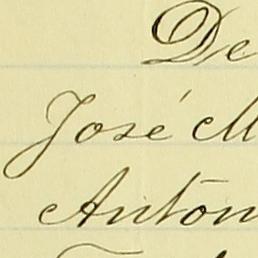 De
José M
Anton